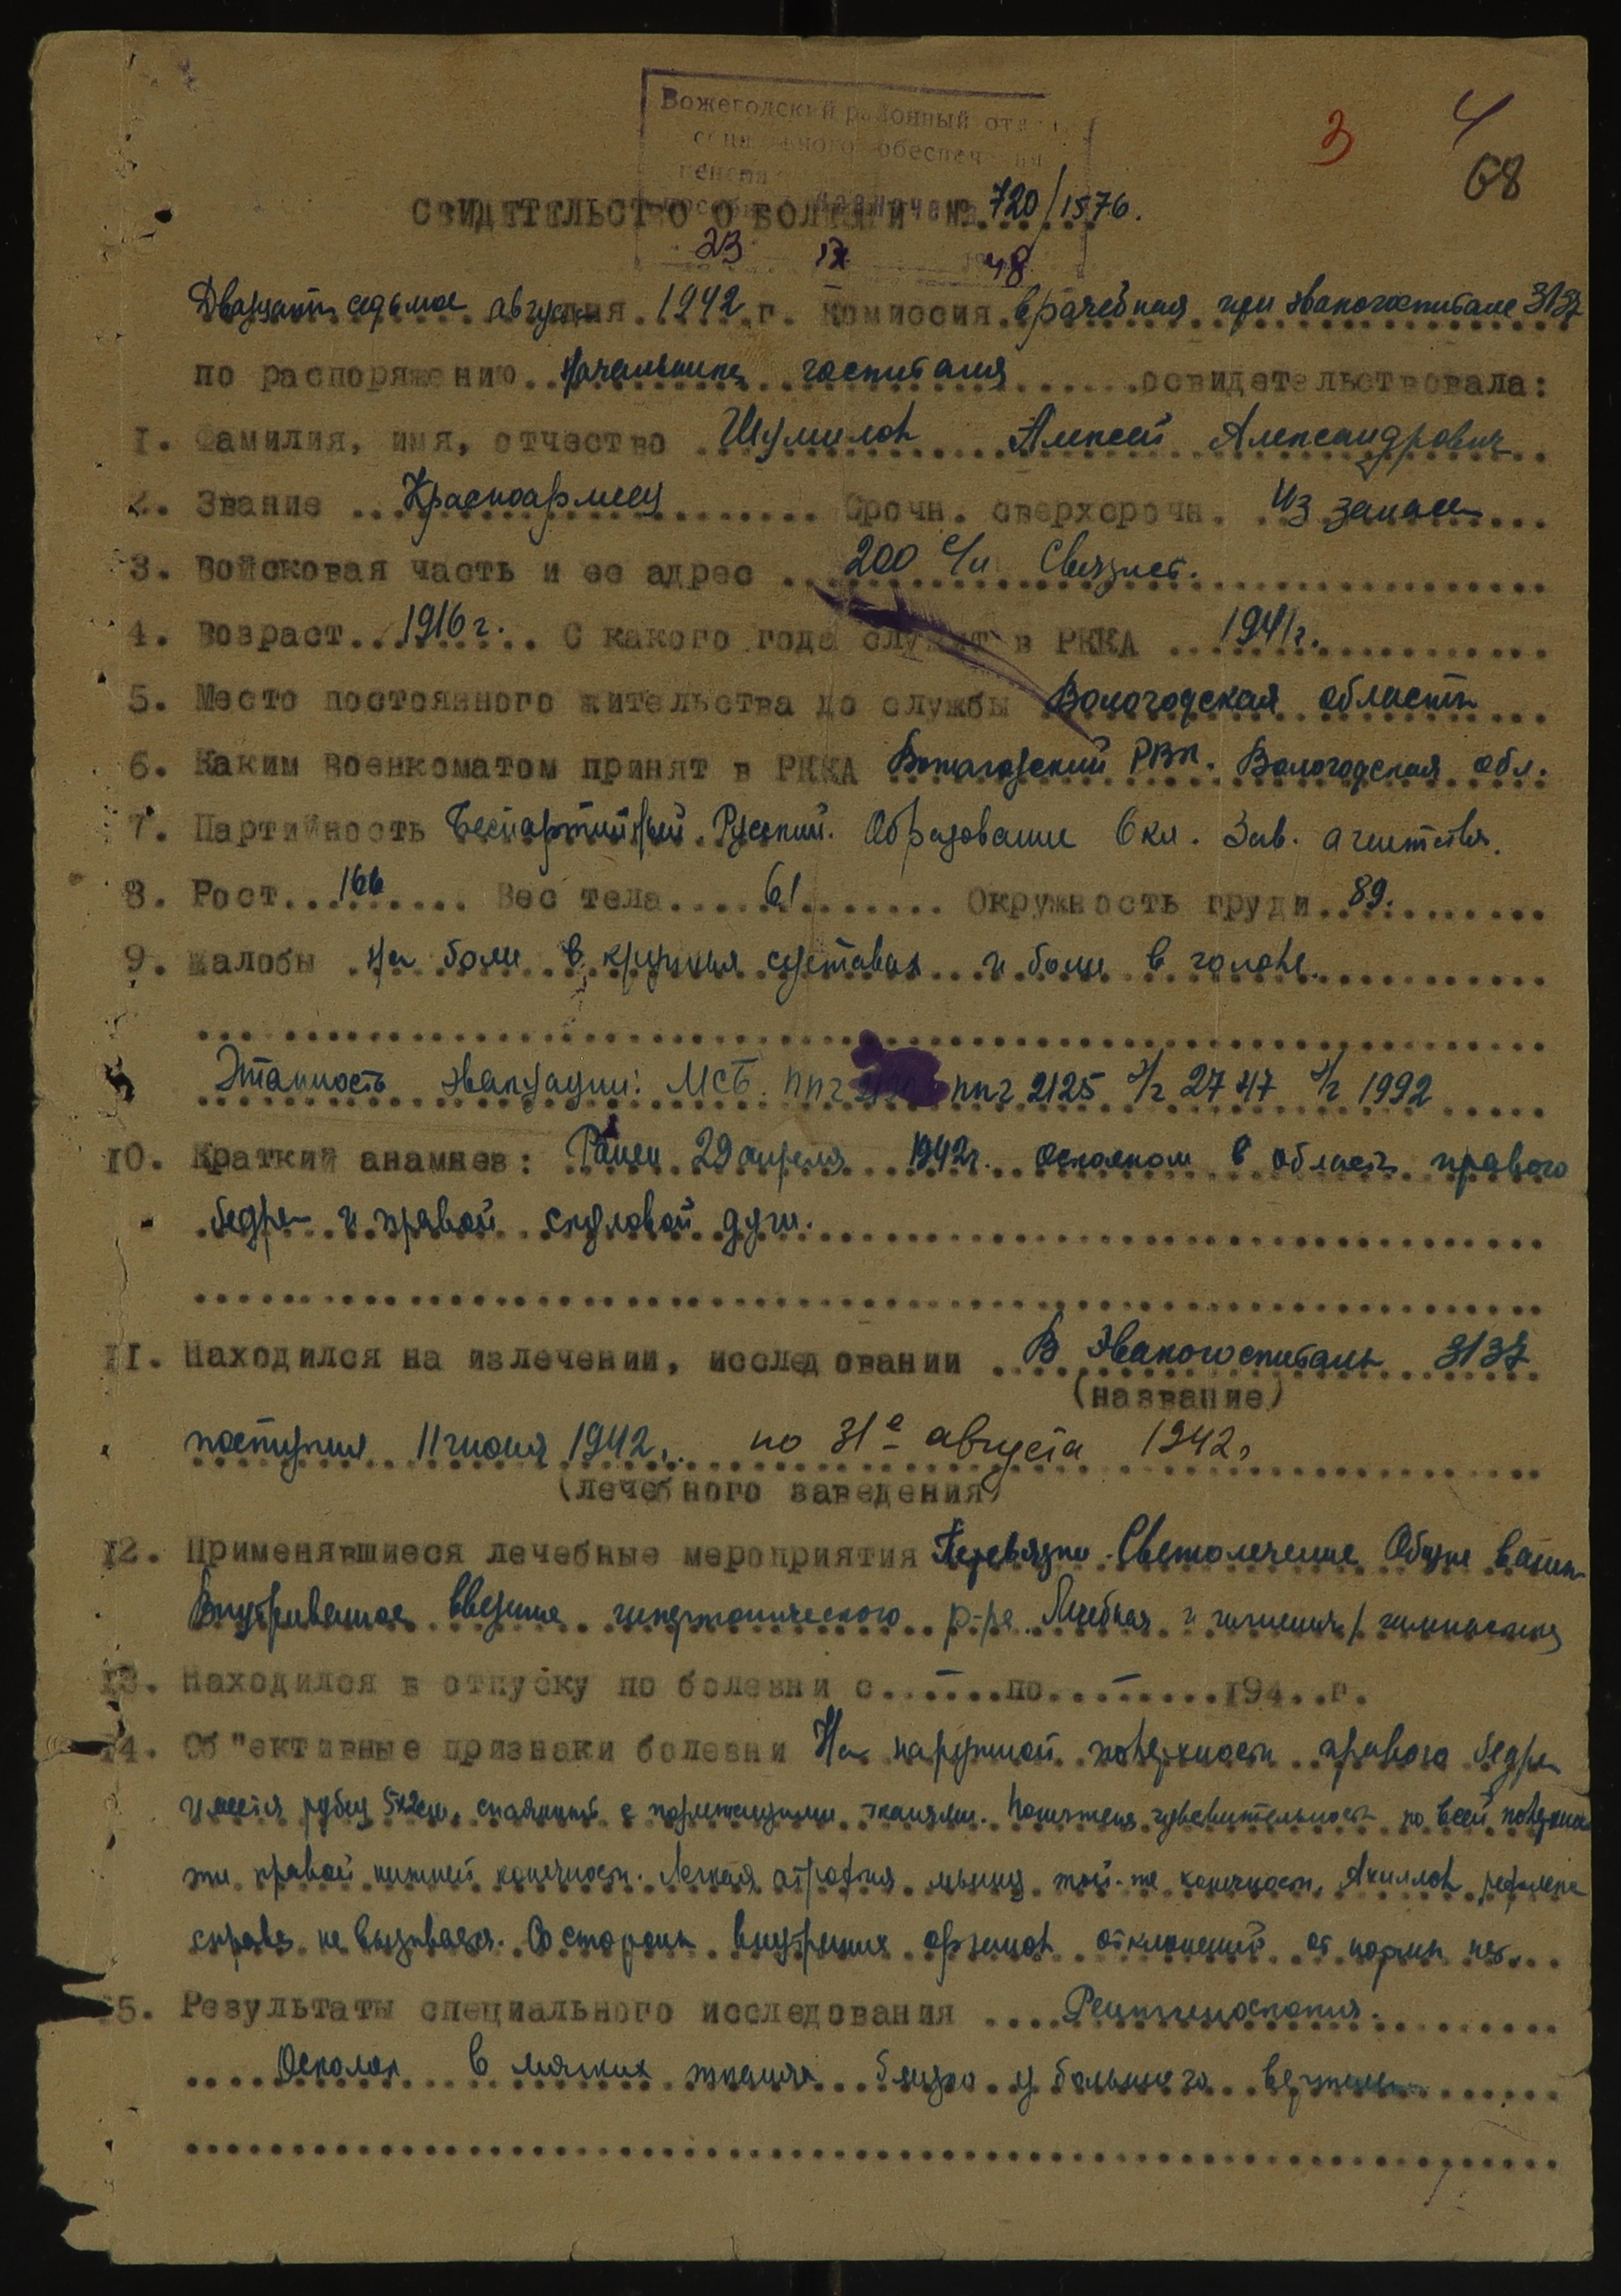 Вожегодский районный отдел
социального обеспечения
пенсия
назначена
3 4
68
СВИДЕТЕЛЬСТВО О БОЛЕЗНИ № 720/1576.
23 IX 1948
Двадцать седьмое августа дня 1942 г. Комиссия врачебная при эвакогоспитале 3137
по распоряжению начальника госпиталя освидетельствовала:
1. Фамилия, имя, отчество Шумилов Алексей Александрович
2. Звание Красноармеец Срочн. сверхсрочн. Из запаса
3. Войсковая часть и ее адрес 200 с/п Связист.
4. Возраст 1916 г. С какого года служит в РККА 1941 г.
5. Место постоянного жительства до службы Вологодская область
6. Каким военкоматом принят в РККА Вожегодский РВК. Вологодская обл.
7. Партийность Беспартийный. Русский. Образование 6 кл. Зав. агентства.
8. Рост 166 Вес тела 61 Окружность груди 89.
9. Жалобы на боли в крупных суставах и боли в голове.
Этапность эвакуации: МСБ. ппг ппг 2125 э/г 2747 э/г 1992
10. Краткий анамнез: Ранен 29 апреля 1942г. осколком в область правого
бедра и правой скуловой дуги.
11. Находился на излечении, исследовании В Эвакогоспиталь 3137
(название)
поступил 11 июня 1942. по 31е августа 1942г
(лечебного заведения)
12. Применявшиеся лечебные мероприятия Перевязки. Светолечение Общие ванны
Внутривенное введение гипертонического р-ра. Лечебная и гимнастика
13. Находился в отпуску по болезни с - по - 194 г.
14. Об"ективные признаки болезни На наружной поверхности правого бедра
имеется рубец 5х2см, спаянный с подлежащими тканями. Понижена чувствительность по всей поверхно
сти правой нижней конечности. Легкая атрофия мышц той-же конечности. Ахиллов рефлекс
справа не вызывается. Со стороны внутренних органов отклонений от нормы нет.
15. Результаты специального исследования Рентгеноскопия.
Осколок в мягких тканях близко у большого вертела